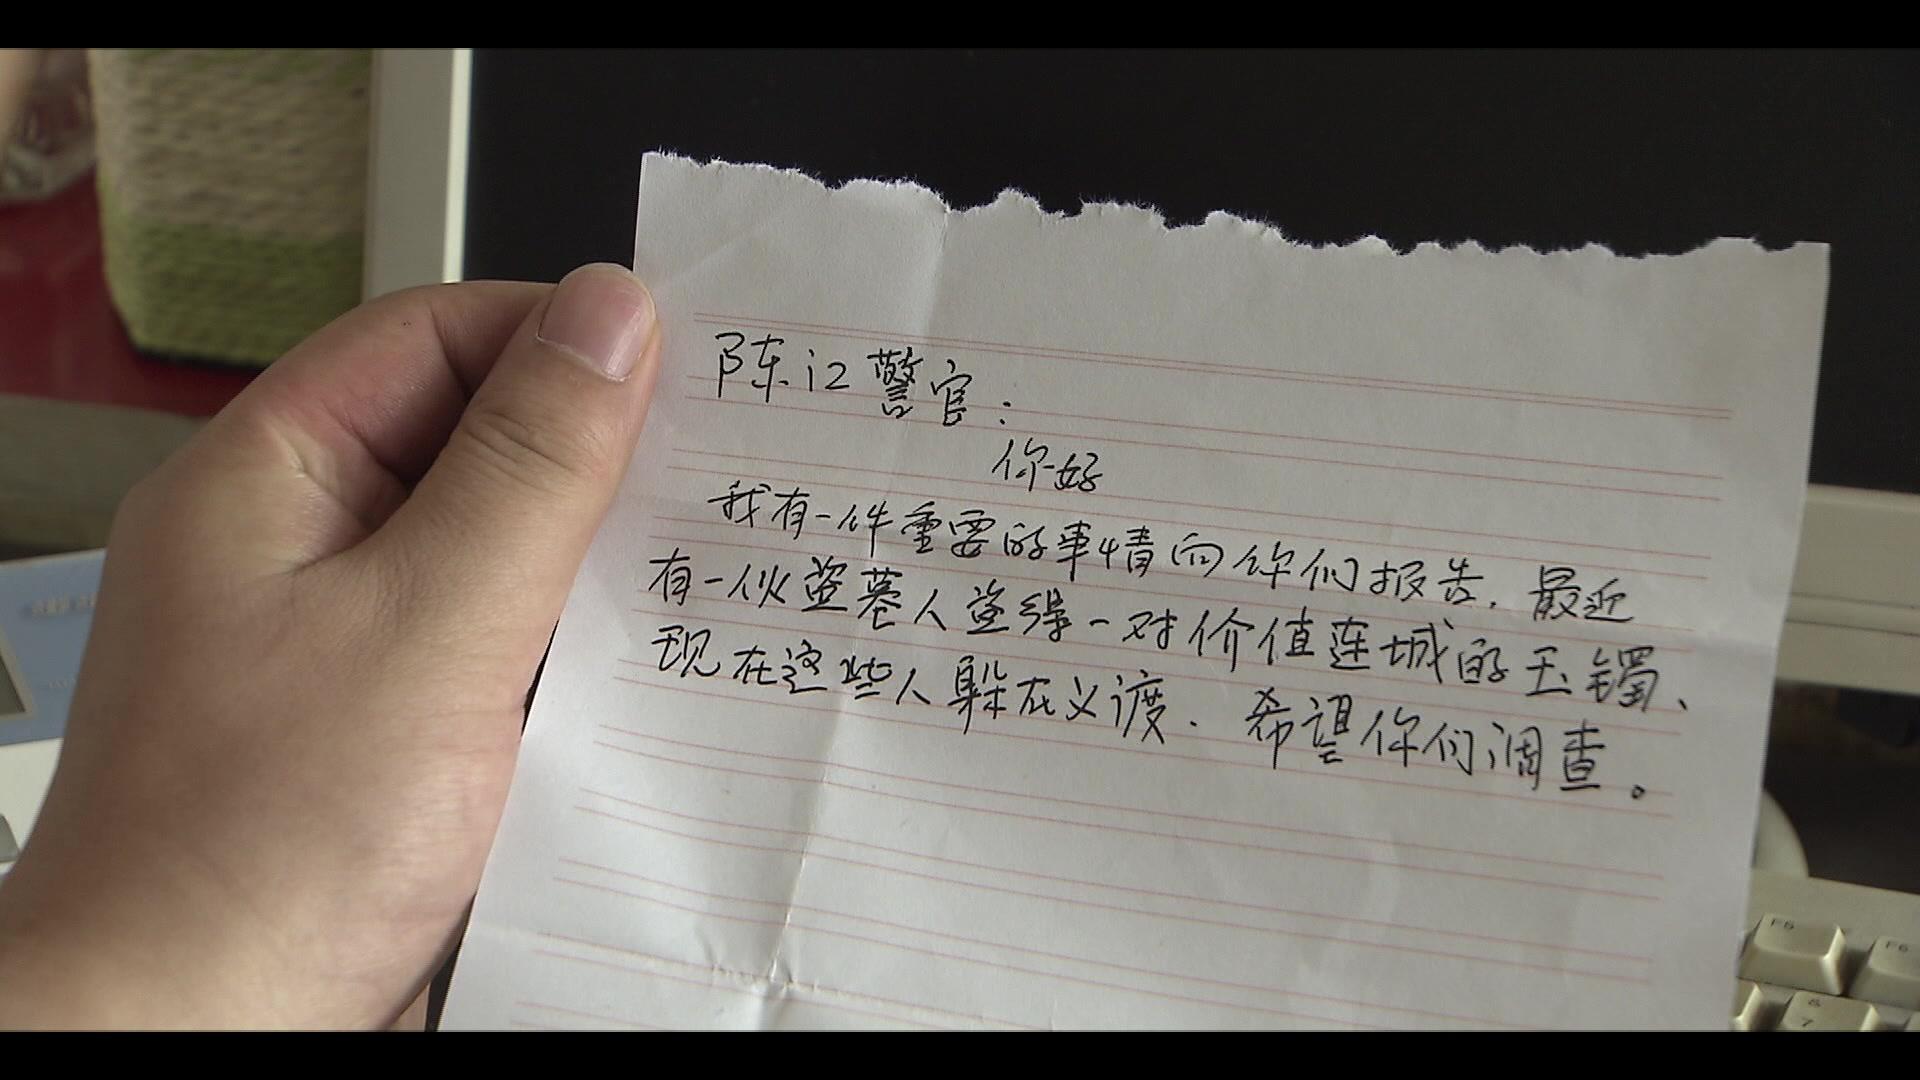 陈江警官：
你好
我有一件重要的事情向你们报告．最近
有一伙盗墓人盗得一对价值连城的玉镯、
现在这些人躲在义渡．希望你们调查。
F5
F6